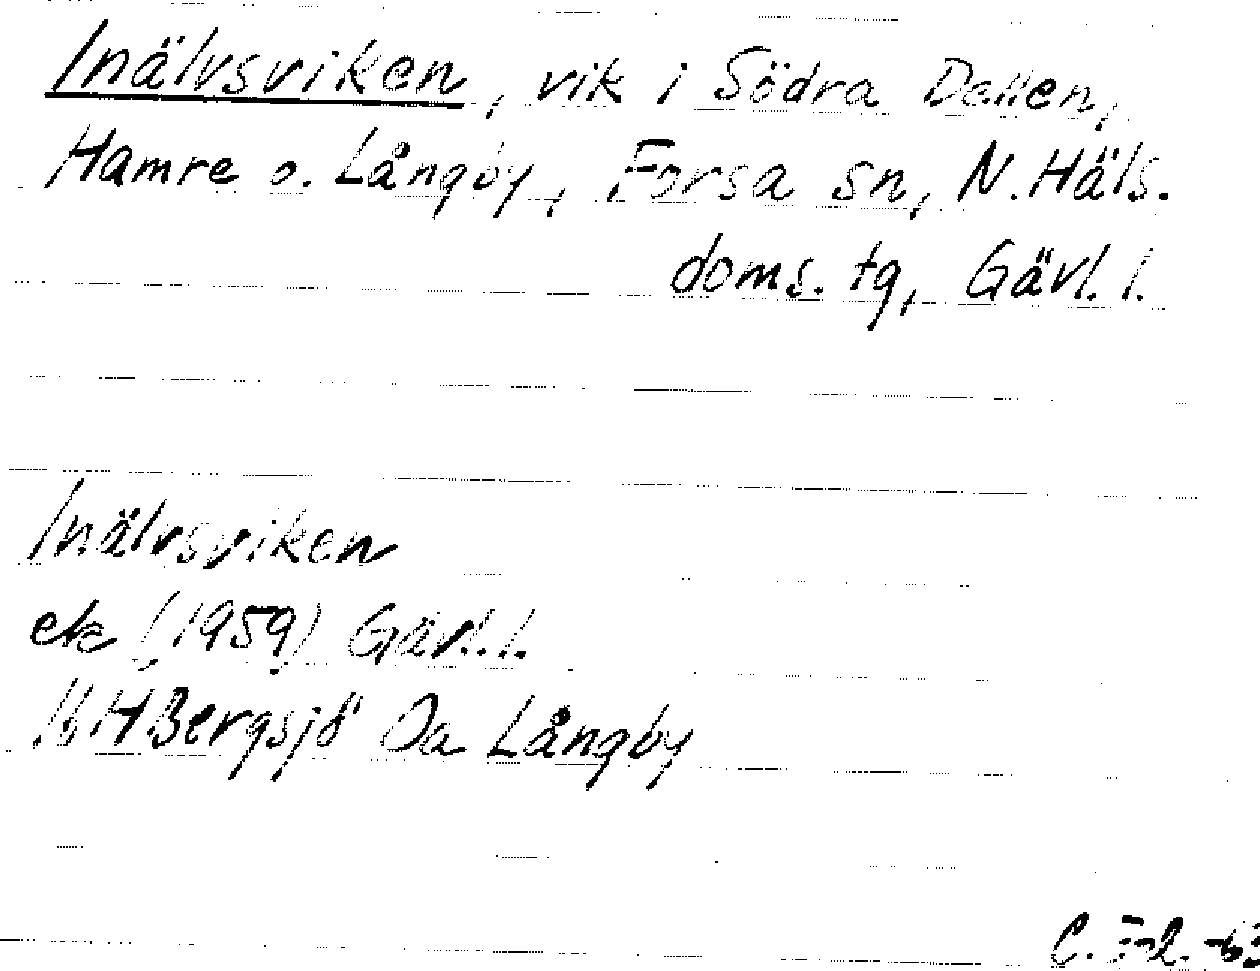 Inälvsviken, vik i Södra Dellen,
Hamre o. Långby, Forsa sn, N. Häls.
doms. tg, Gävl. l.
Inälvsviken
ek (1959) Gävl. l.
Bergsjö Oa Långby